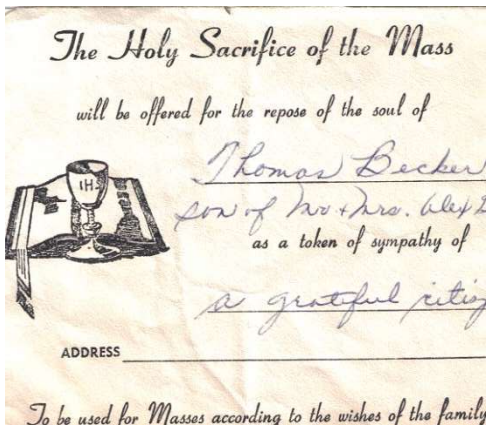 The Holy Sacrifice of the Mass
will be offered for the repose of the soul of
Thomas Becker
son of Mr + Mrs. Alex
as a token of sympathy of
a grateful
IHS
ADDRESS
To be used for Masses according to the wishes of the family